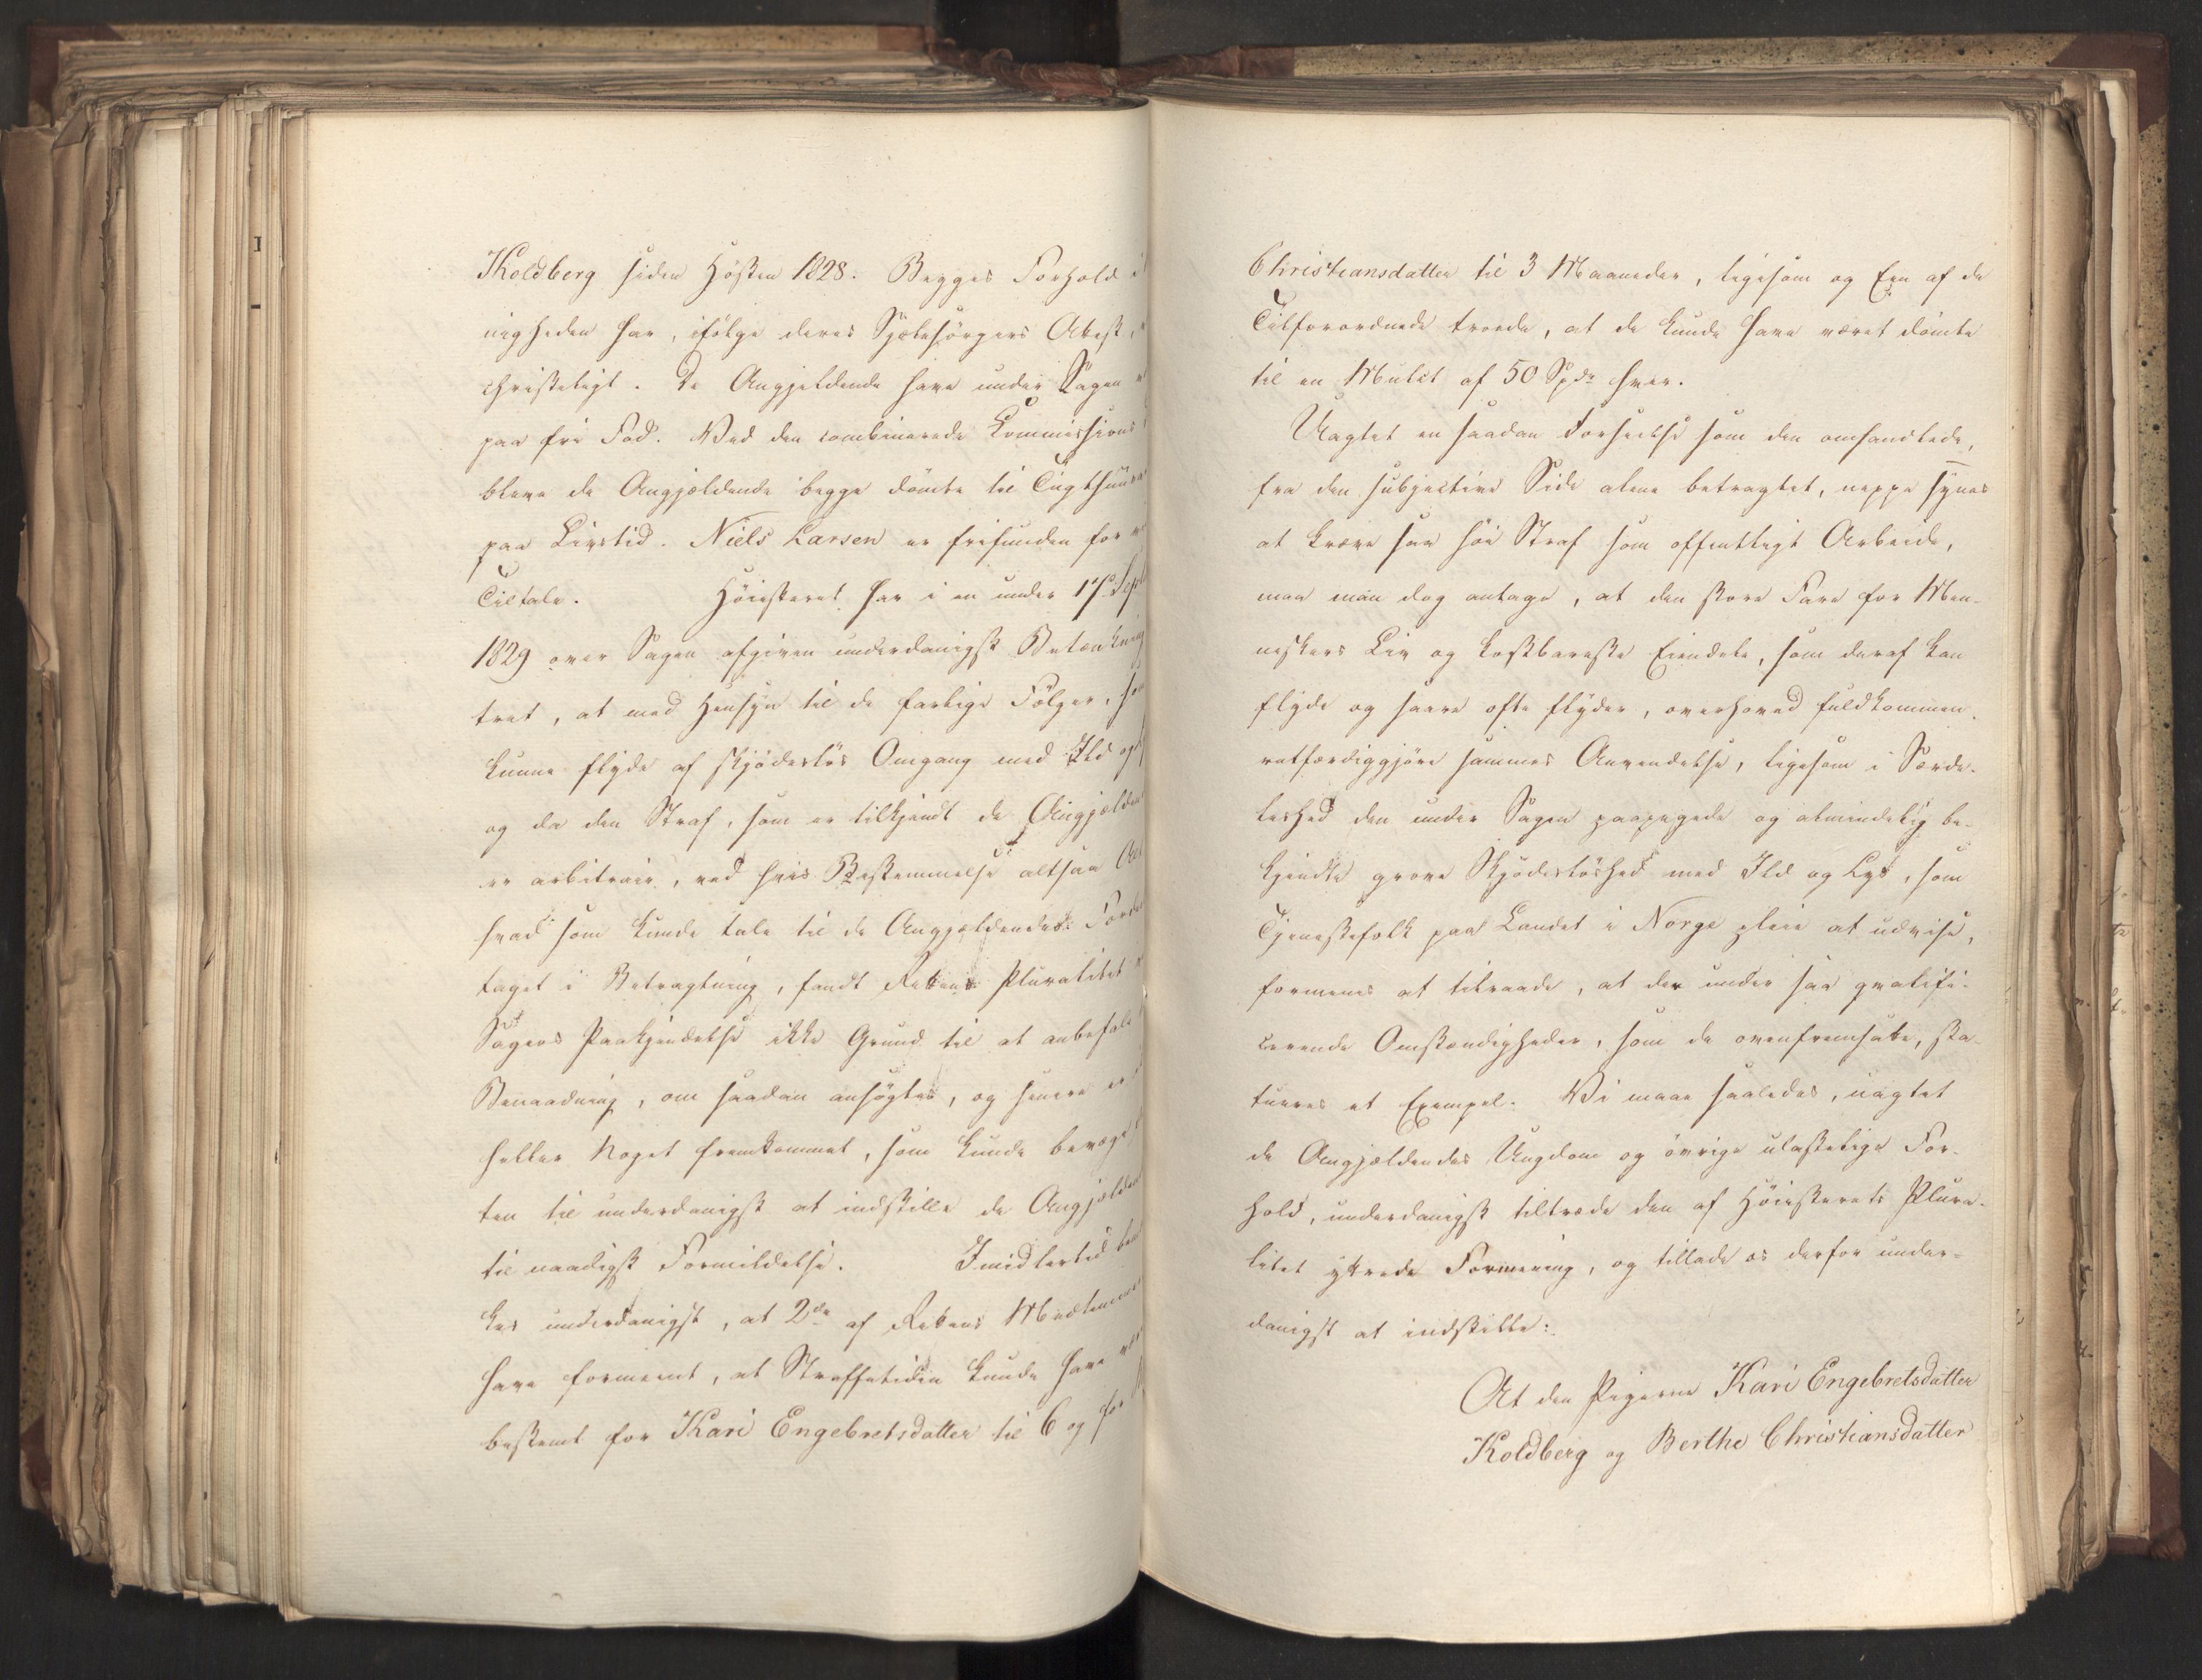 Koldberg siden Høsten 1828. Begges Forhold i
nigheden har, ifølge deres Sjælesørgers Attest,
christeligt. De Angjeldende have under Sagen
paa fri Fod. Ved den combinerede Commissions
bleve de Angjældende begge dømte til Tugthuus
paa Livstid. Niels Larsen er frifunden for
Tiltale. Høiesteret har i en under 17de Sept
1829 over Sagen afgiven underdanigst Betænkning
tret, at med Hensyn til de farlige Følger, som
kunne flyde af skjødesløs Omgang med Ild og
og da den Straf, som er tilkjendt de Angjælden
er arbitrair, ved hvis Bestemmelse altsaa
hvad som kunde tale til de Angjældendes Fordel
taget i Betragtning, fandt Rettens Pluralitet
Sagens Paakjendelse ikke Grund til at anbefale
Benaadning, om saadan ansøgtes, og senere er
heller Noget fremkommet, som kunde bevæge
ten til underdanigst at indstille de Angjælden
til naadigst Formildelse. Imidlertid bem
kes underdanigst, at 2de af Rettens Medlemmer
have formeent, at Straffetiden kunde have
bestemt for Kari Engebretsdatter til 6 og for
Christiansdatter til 3 Maaneder, ligesom og Een af de
Tilforordnede troede, at de kunde have været dømte
til en Mulct af 50 Spdr hver.
Uagtet en saadan Forseelse som den omhandlede,
fra den subjective Side alene betragtet, neppe synes
at kræve saa høi Straf som offentligt Arbeide,
maa man dog antage, at den store Fare for Men-
neskers Liv og kostbareste Eiendele, som deraf kan
flyde og saare ofte flyder, overhoved fuldkommen
retfærdiggjøre sammes Anvendelse, ligesom i Særde-
leshed den under Sagen paapegede og almindelig be-
kjendte grove Skjødesløshed med Ild og Lys, som
Tjenestefolk paa Landet i Norge pleie at udvise,
formenes at tilraade, at der under saa gvalifi-
cerende Omstændigheder, som de ovenfremsatte, sta-
tueres et Exempel. Vi maae saaledes, uagtet
de Angjældendes Ungdom og øvrige ulastelige For-
hold, underdanigst tiltræde den af Høiesterets Plura-
litet yttrede Formening, og tillade os derfor under-
danigst at indstille:
At den Pigerne Kari Engebretsdatter
Koldberg og Berthe Christiansdatter